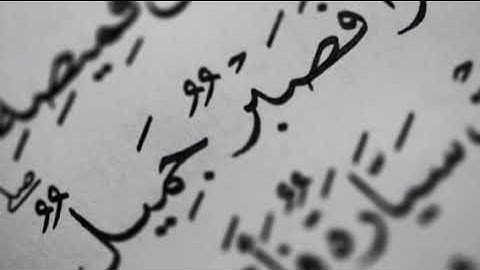 قَمِيصِهِ
فَصَبْرٌ جَمِيلٌ
سَيَّارَةٌ